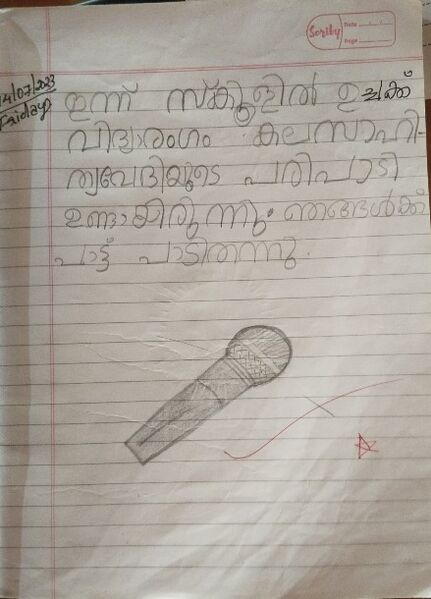 Scriby
Date
Page
14/07/2023
Friday
ഇന്ന് സ്കൂളിൽ ഉച്ചക്ക്
വിദ്യാരംഗം കലസാഹി-
ത്യവേദിയുടെ പരിപാടി
ഉണ്ടായിരുന്നു. ഞങ്ങൾക്ക്
പാട്ട് പാടിതന്നു.